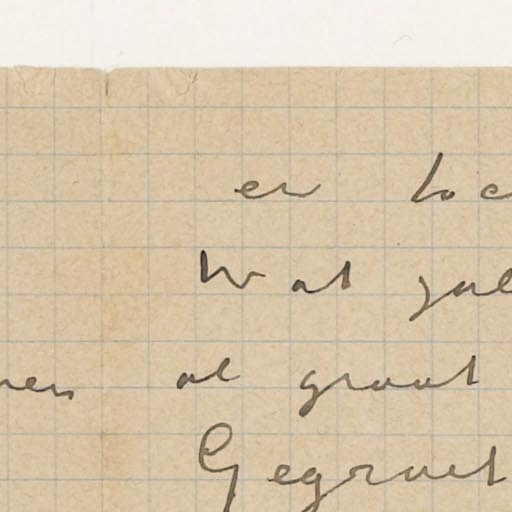 en toe
Wat zal
nen al groot
Gegroet